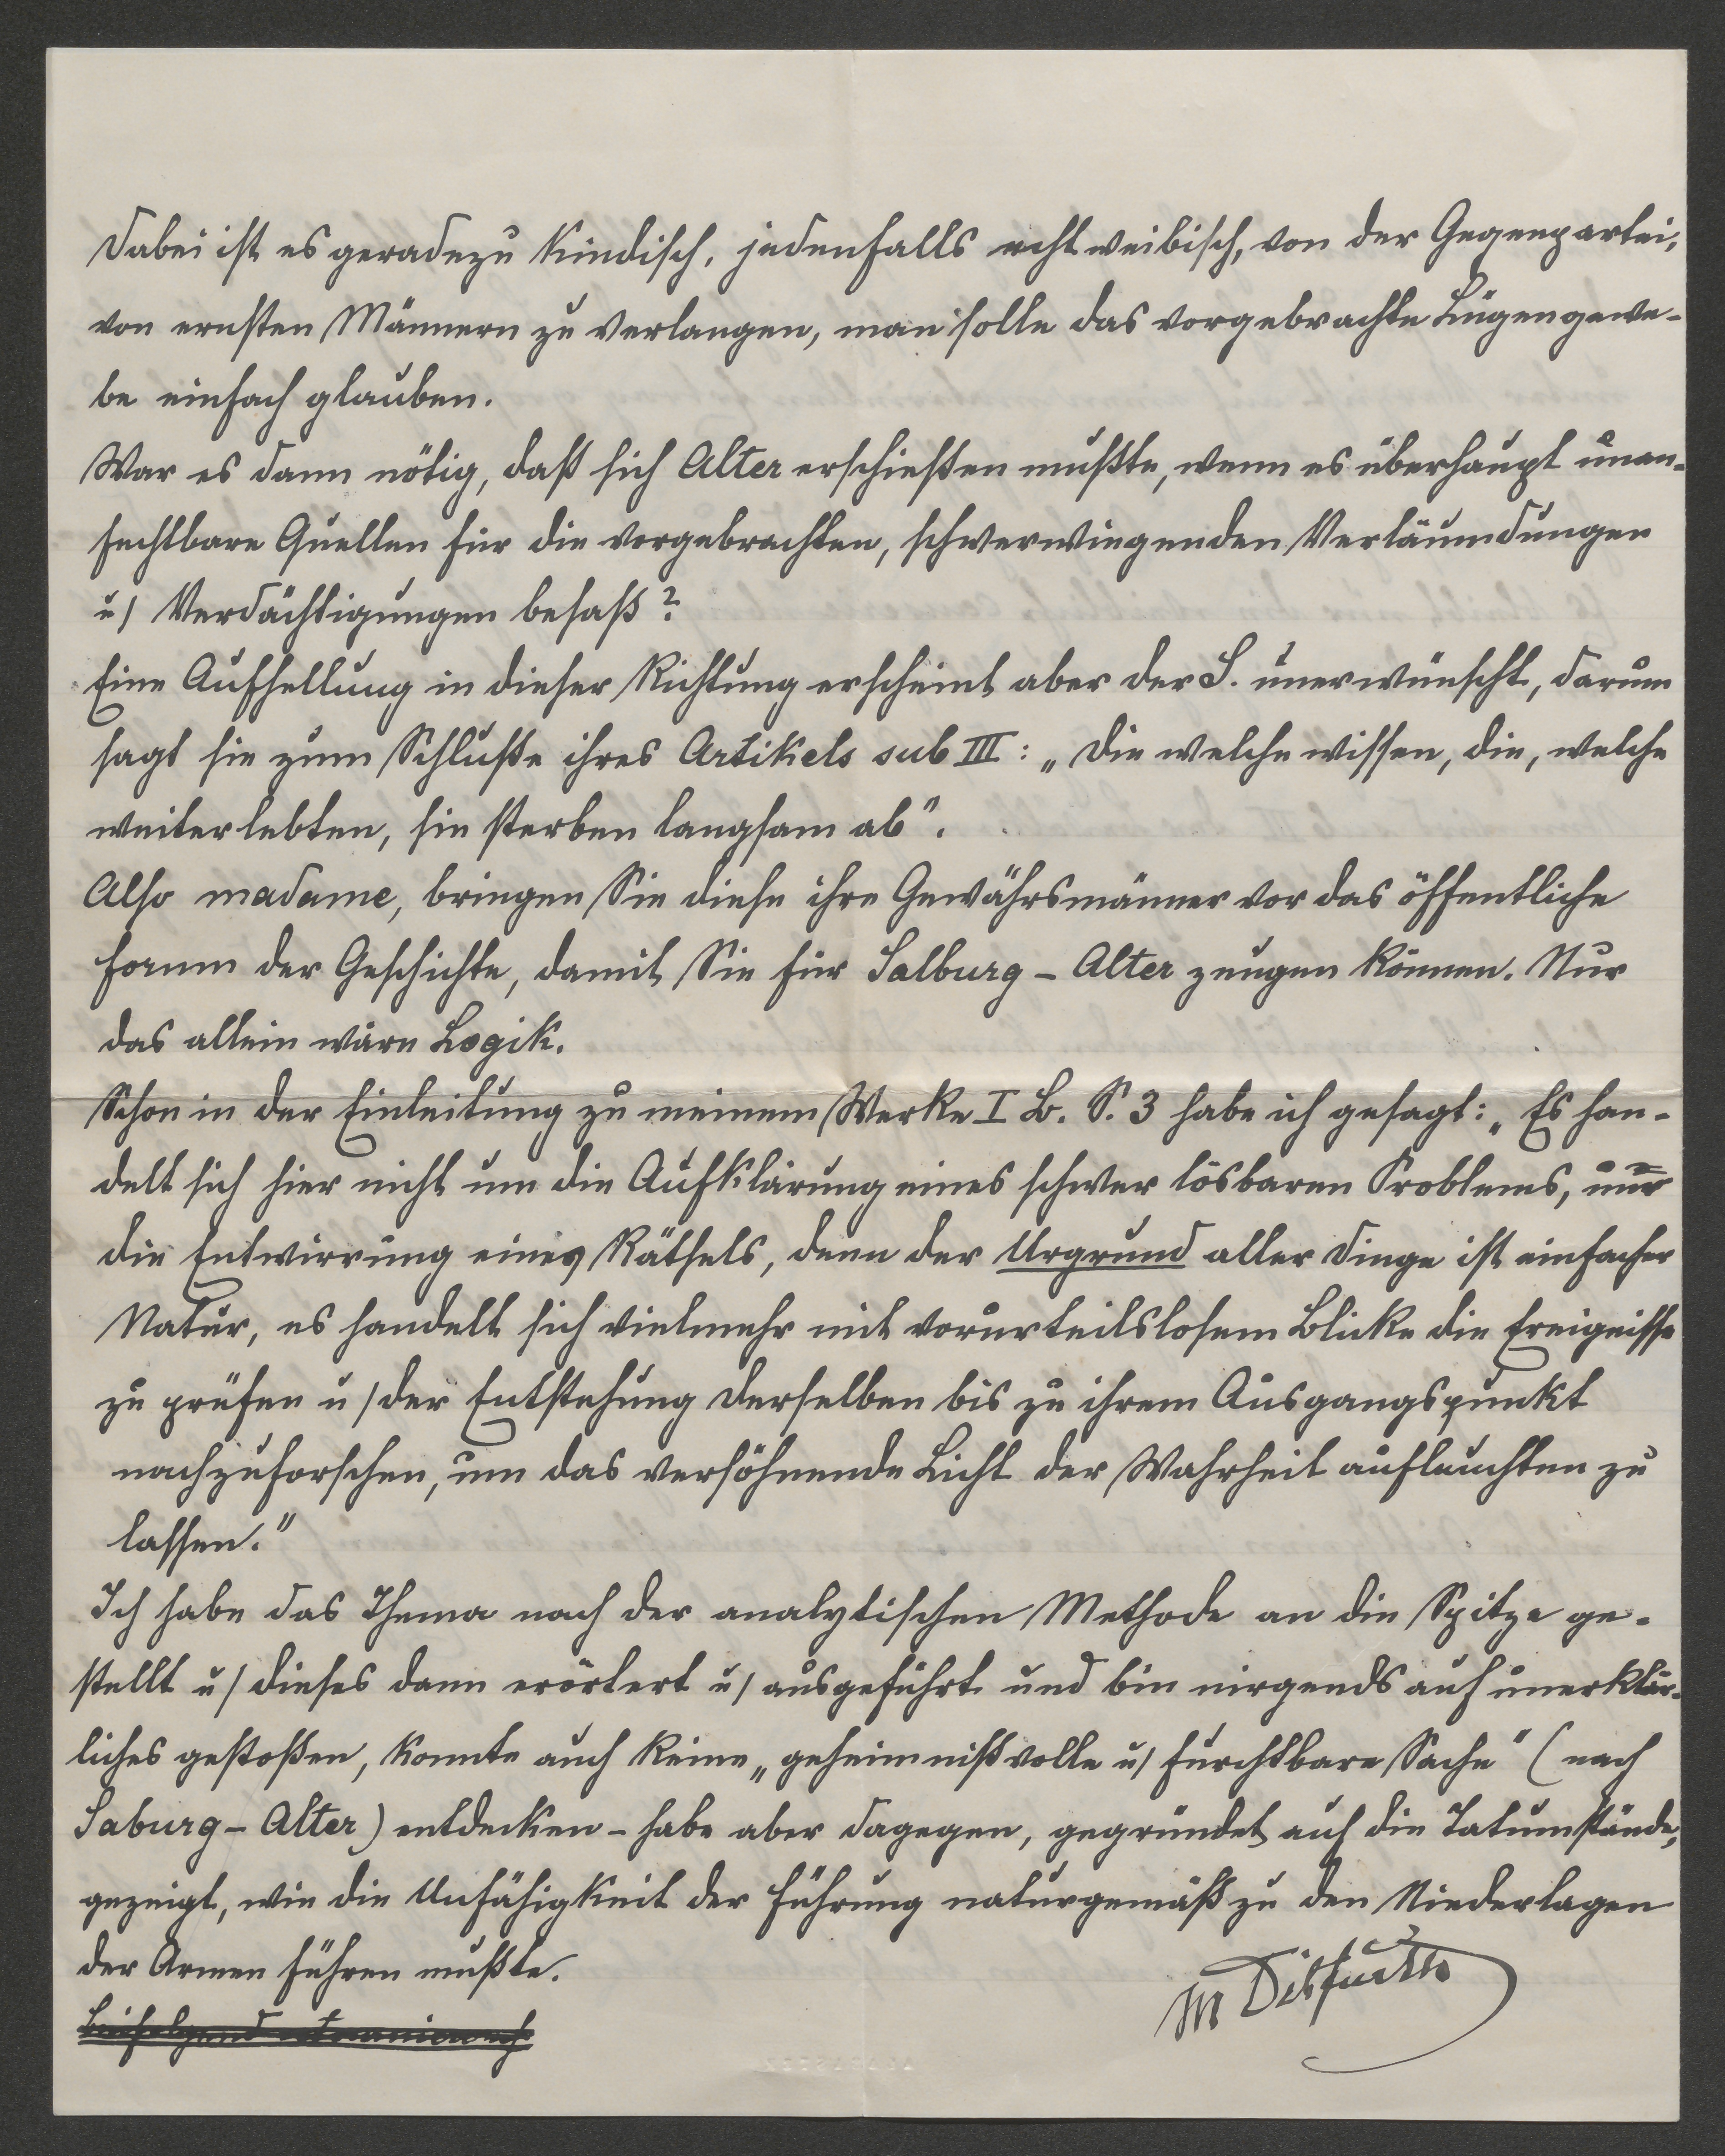 Dabei ist es geradezu kindisch, jedenfalls recht weibisch, von der Gegenpartei,
von ernsten Männern zu verlangen, man solle das vorgebrachte Lügengewe-
be einfach glauben.
War es dann nötig, daß sich Alter erschießen mußte, wenn es überhaupt unan-
fechtbare Quellen für die vorgebrachten, schwerwiegenden Verläumdungen
u/ Verdächtigungen besaß?
Eine Aufhellung in dieser Richtung erscheint aber der S. unerwünscht, darum
sagt sie zum Schluße ihres Artikels sub III: „Die welche wissen, die, welche
weiterlebten, sie sterben langsam ab".
Also madame, bringen Sie diese ihre Gewährsmänner vor das öffentliche
Forum der Geschichte, damit Sie für Salburg - Alter zeugen können. Nur
das allein wäre Logik.
Schon in der Einleitung zu meinem Werke I B. S. 3 habe ich gesagt: „Es han-
delt sich hier nicht um die Aufklärung eines schwer lösbaren Problems,
die Entwirrung eines Räthsels, denn der Urgrund aller Dinge ist einfacher
Natur, es handelt sich vielmehr mit vorurteilslosem Blicke die Ereignisse
zu prüfen u/ der Entstehung derselben bis zu ihrem Ausgangspunkt
nachzuforschen, um das versöhnende Licht der Wahrheit aufleuchten zu
lassen."
Ich habe das Thema nach der analytischen Methode an die Spitze ge-
stellt u/ dieses dann erörtert u/ ausgeführt und bin nirgends auf unerklär-
liches gestoßen, konnte auch keine „geheimnißvolle u/ furchtbare Sache" (nach
Saburg - Alter) entdecken - habe aber dagegen, gegründet auf die Tatumstände,
gezeigt, wie die Unfähigkeit der Führung naturgemäß zu den Niederlagen
der Armen führen mußte.